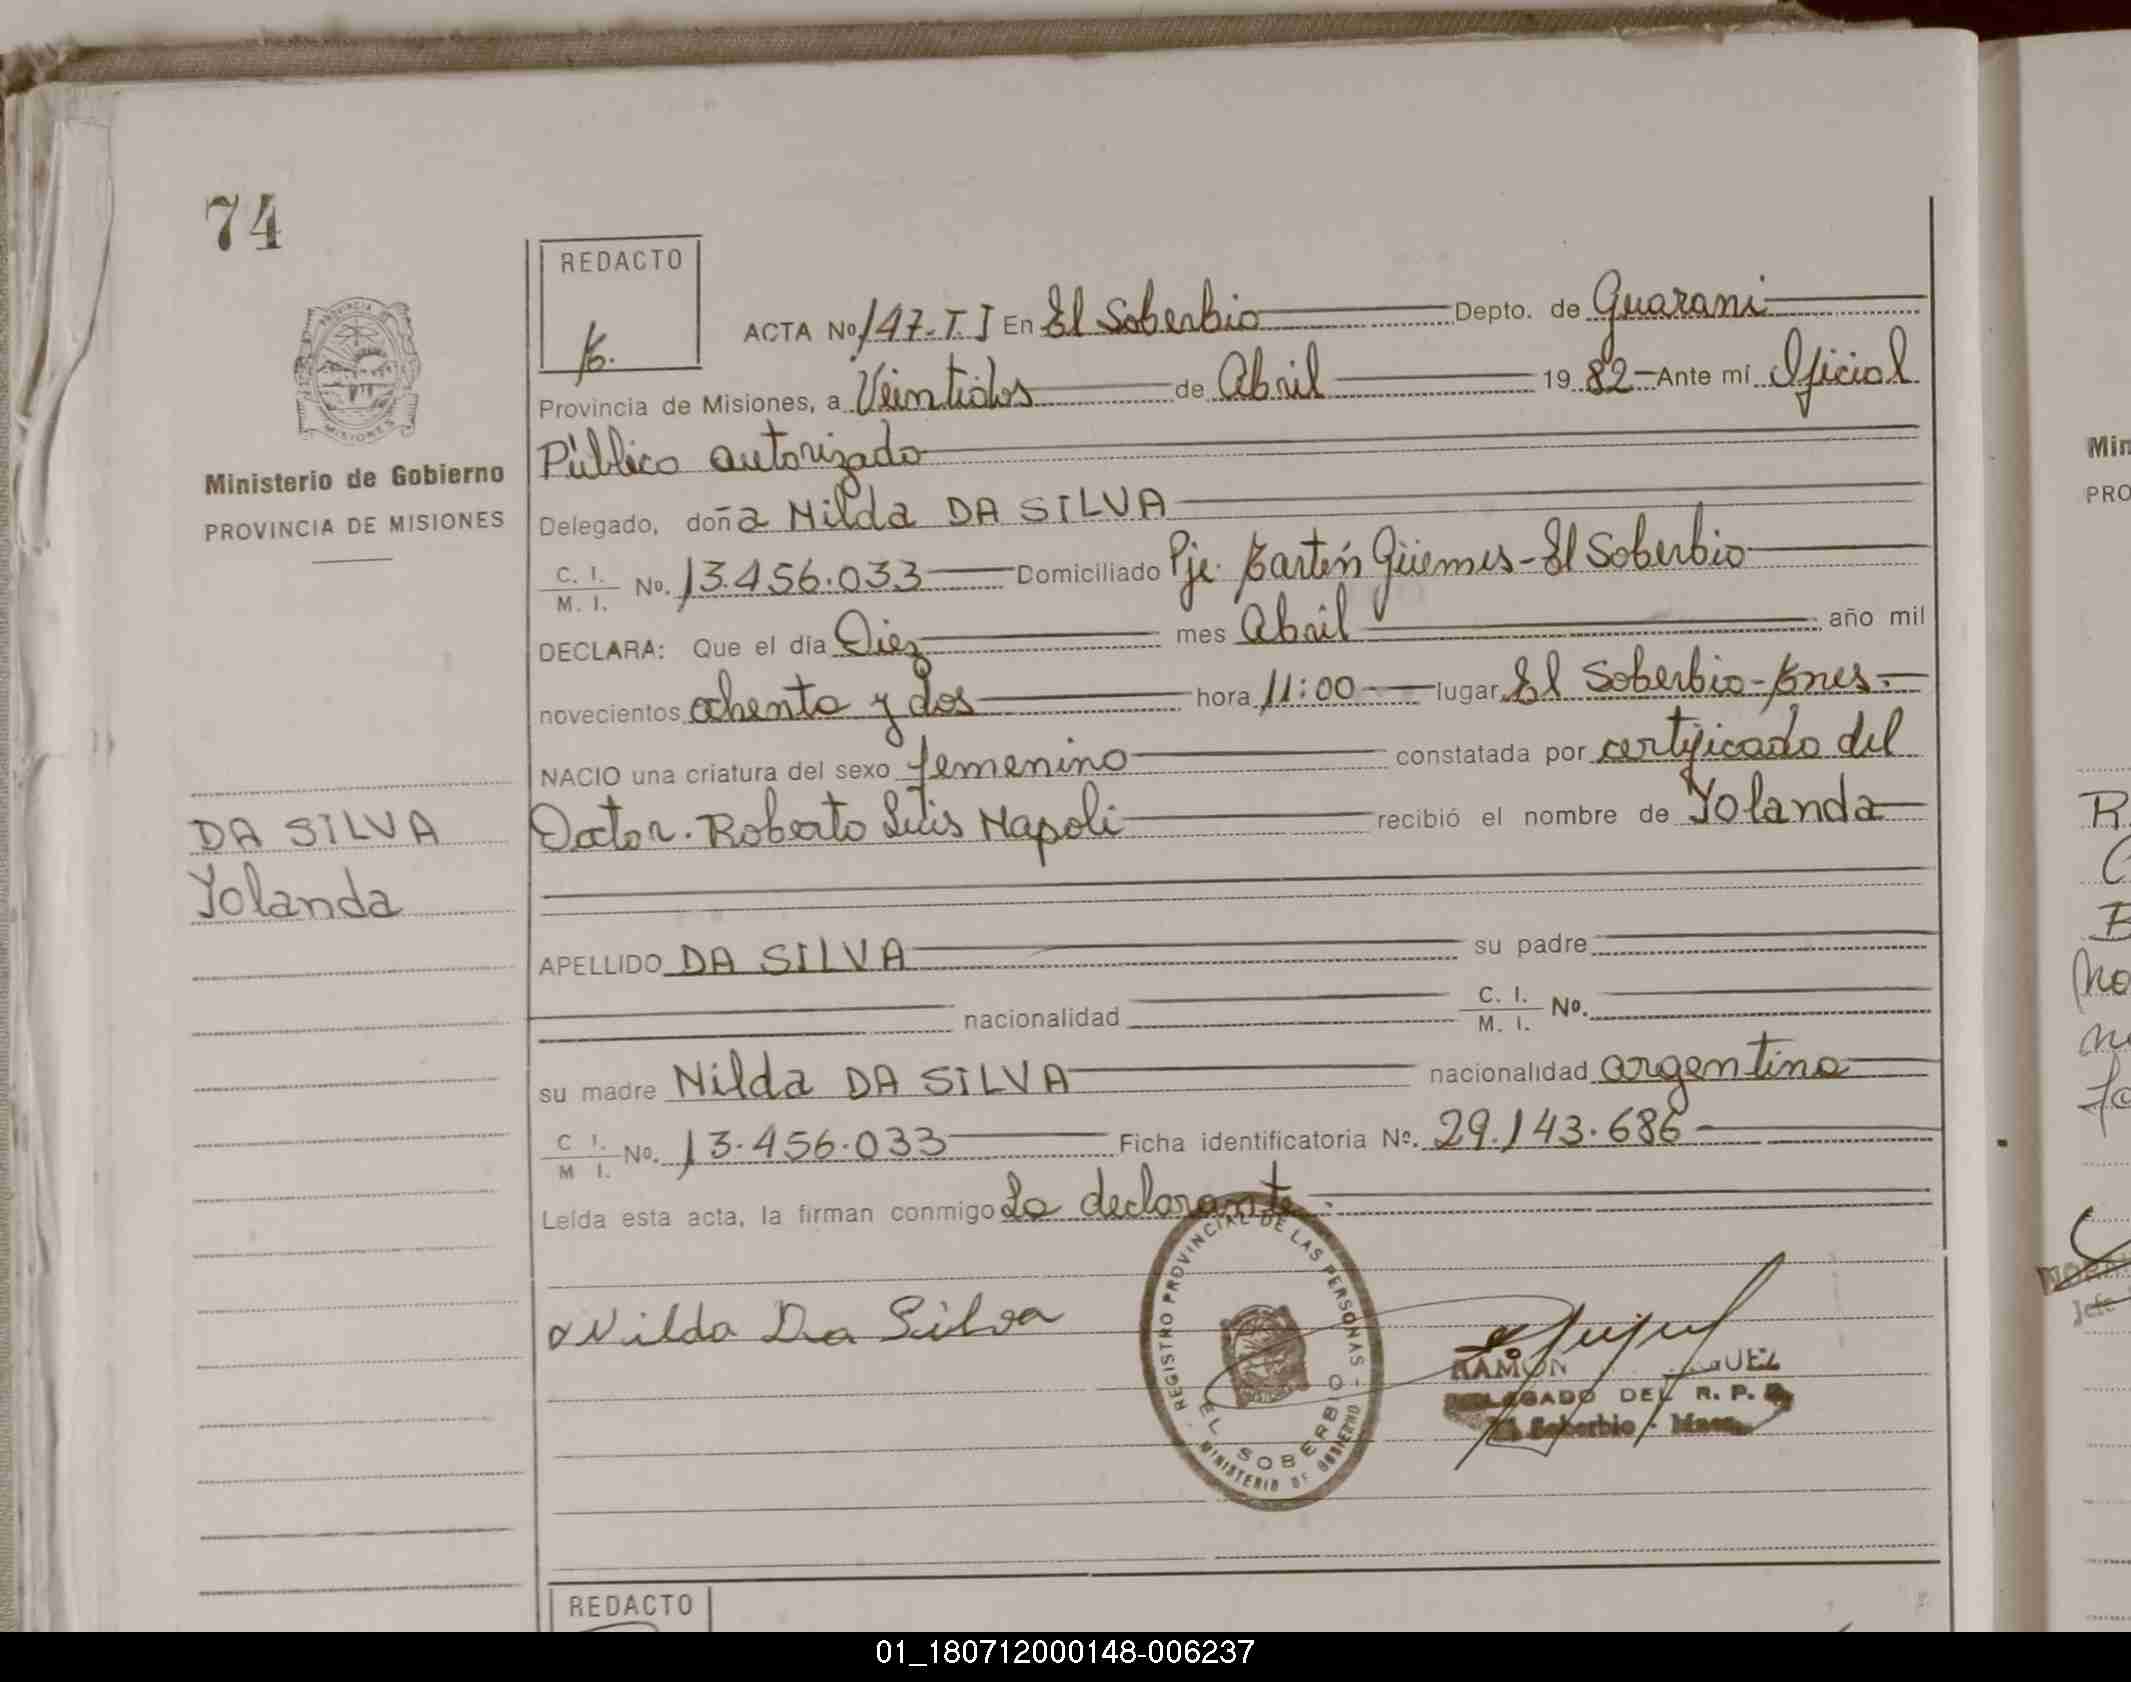 74
REDACTO
ACTA Nº 147-T.I En El Soberbio Depto. de Guarani
Provincia de Misiones, a Veintidos de Abril 1982 Ante mi Oficial
Público autorizado
Ministerio de Gobierno
PROVINCIA DE MISIONES
Delegado, doña Nilda DA SILVA
C. I. / M. I. No. 13.456.033 Domiciliado Pje. Martín Güemes - El Soberbio
DECLARA: Que el día Diez mes Abril año mil
novecientos ochenta y dos hora 11:00 lugar El Soberbio - Mnes.
NACIO una criatura del sexo femenino constatada por certificado del
Doctor. Roberto Luis Napoli recibió el nombre de Yolanda
DA SILVA
Yolanda
APELLIDO DA SILVA su padre
nacionalidad C. I. / M. I. Nº.
su madre Nilda DA SILVA nacionalidad argentina
C I. / M I. Nº. 13.456.033 Ficha identificatoria Nº. 29.143.686
Leída esta acta, la firman conmigo La declarante.
Nilda Da Silva
REGISTRO PROVINCIAL DE LAS PERSONAS
EL SOBERBIO
MINISTERIO DE GOBIERNO
RAMON
DELEGADO DEL R. P.
El Soberbio - Mnes.
REDACTO
01_180712000148-006237